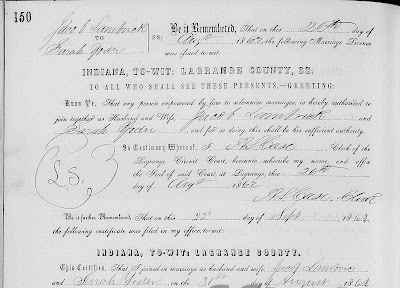 150
Jacob Lambrick
TO
Sarah Yoder
SS:
Be it Remembered, That on this 26th day of
Augt 1862 the following Marriage License
was issued, to-wit:
INDIANA, TO-WIT: LAGRANGE COUNTY, SS:
TO ALL WHO SHALL SEE THESE PRESENTS,—GREETING:
Know Ye, That any person empowered by law to solemnize marriages, is hereby authorized to
join together as Husband and Wife, Jacob Lambrick and
Sarah Yoder and for so doing this shall be his sufficient authority.
In Testimony Whereof, I, Clerk of the
Lagrange Circuit Court, hereunto subscribe my name, and affix
the Seal of said Court, at Lagrange, this 26th
day of Augt 1862
L.S.
Case, Clerk
Be it further Remembered, That on this 22d day of Sept 1862
the following certificate was filed in my office, to-wit:
INDIANA, TO-WIT: LAGRANGE COUNTY.
This Certifies, That I joined in marriage as husband and wife,
and Sarah on the 31 day of August 1862